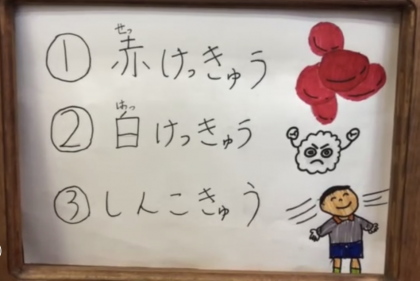 ① 赤けっきゅう
② 白けっきゅう
③ しんこきゅう